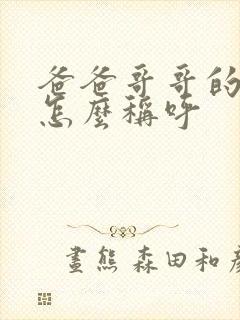 爸爸哥哥的
怎麼稱呼
畫熊 森田和